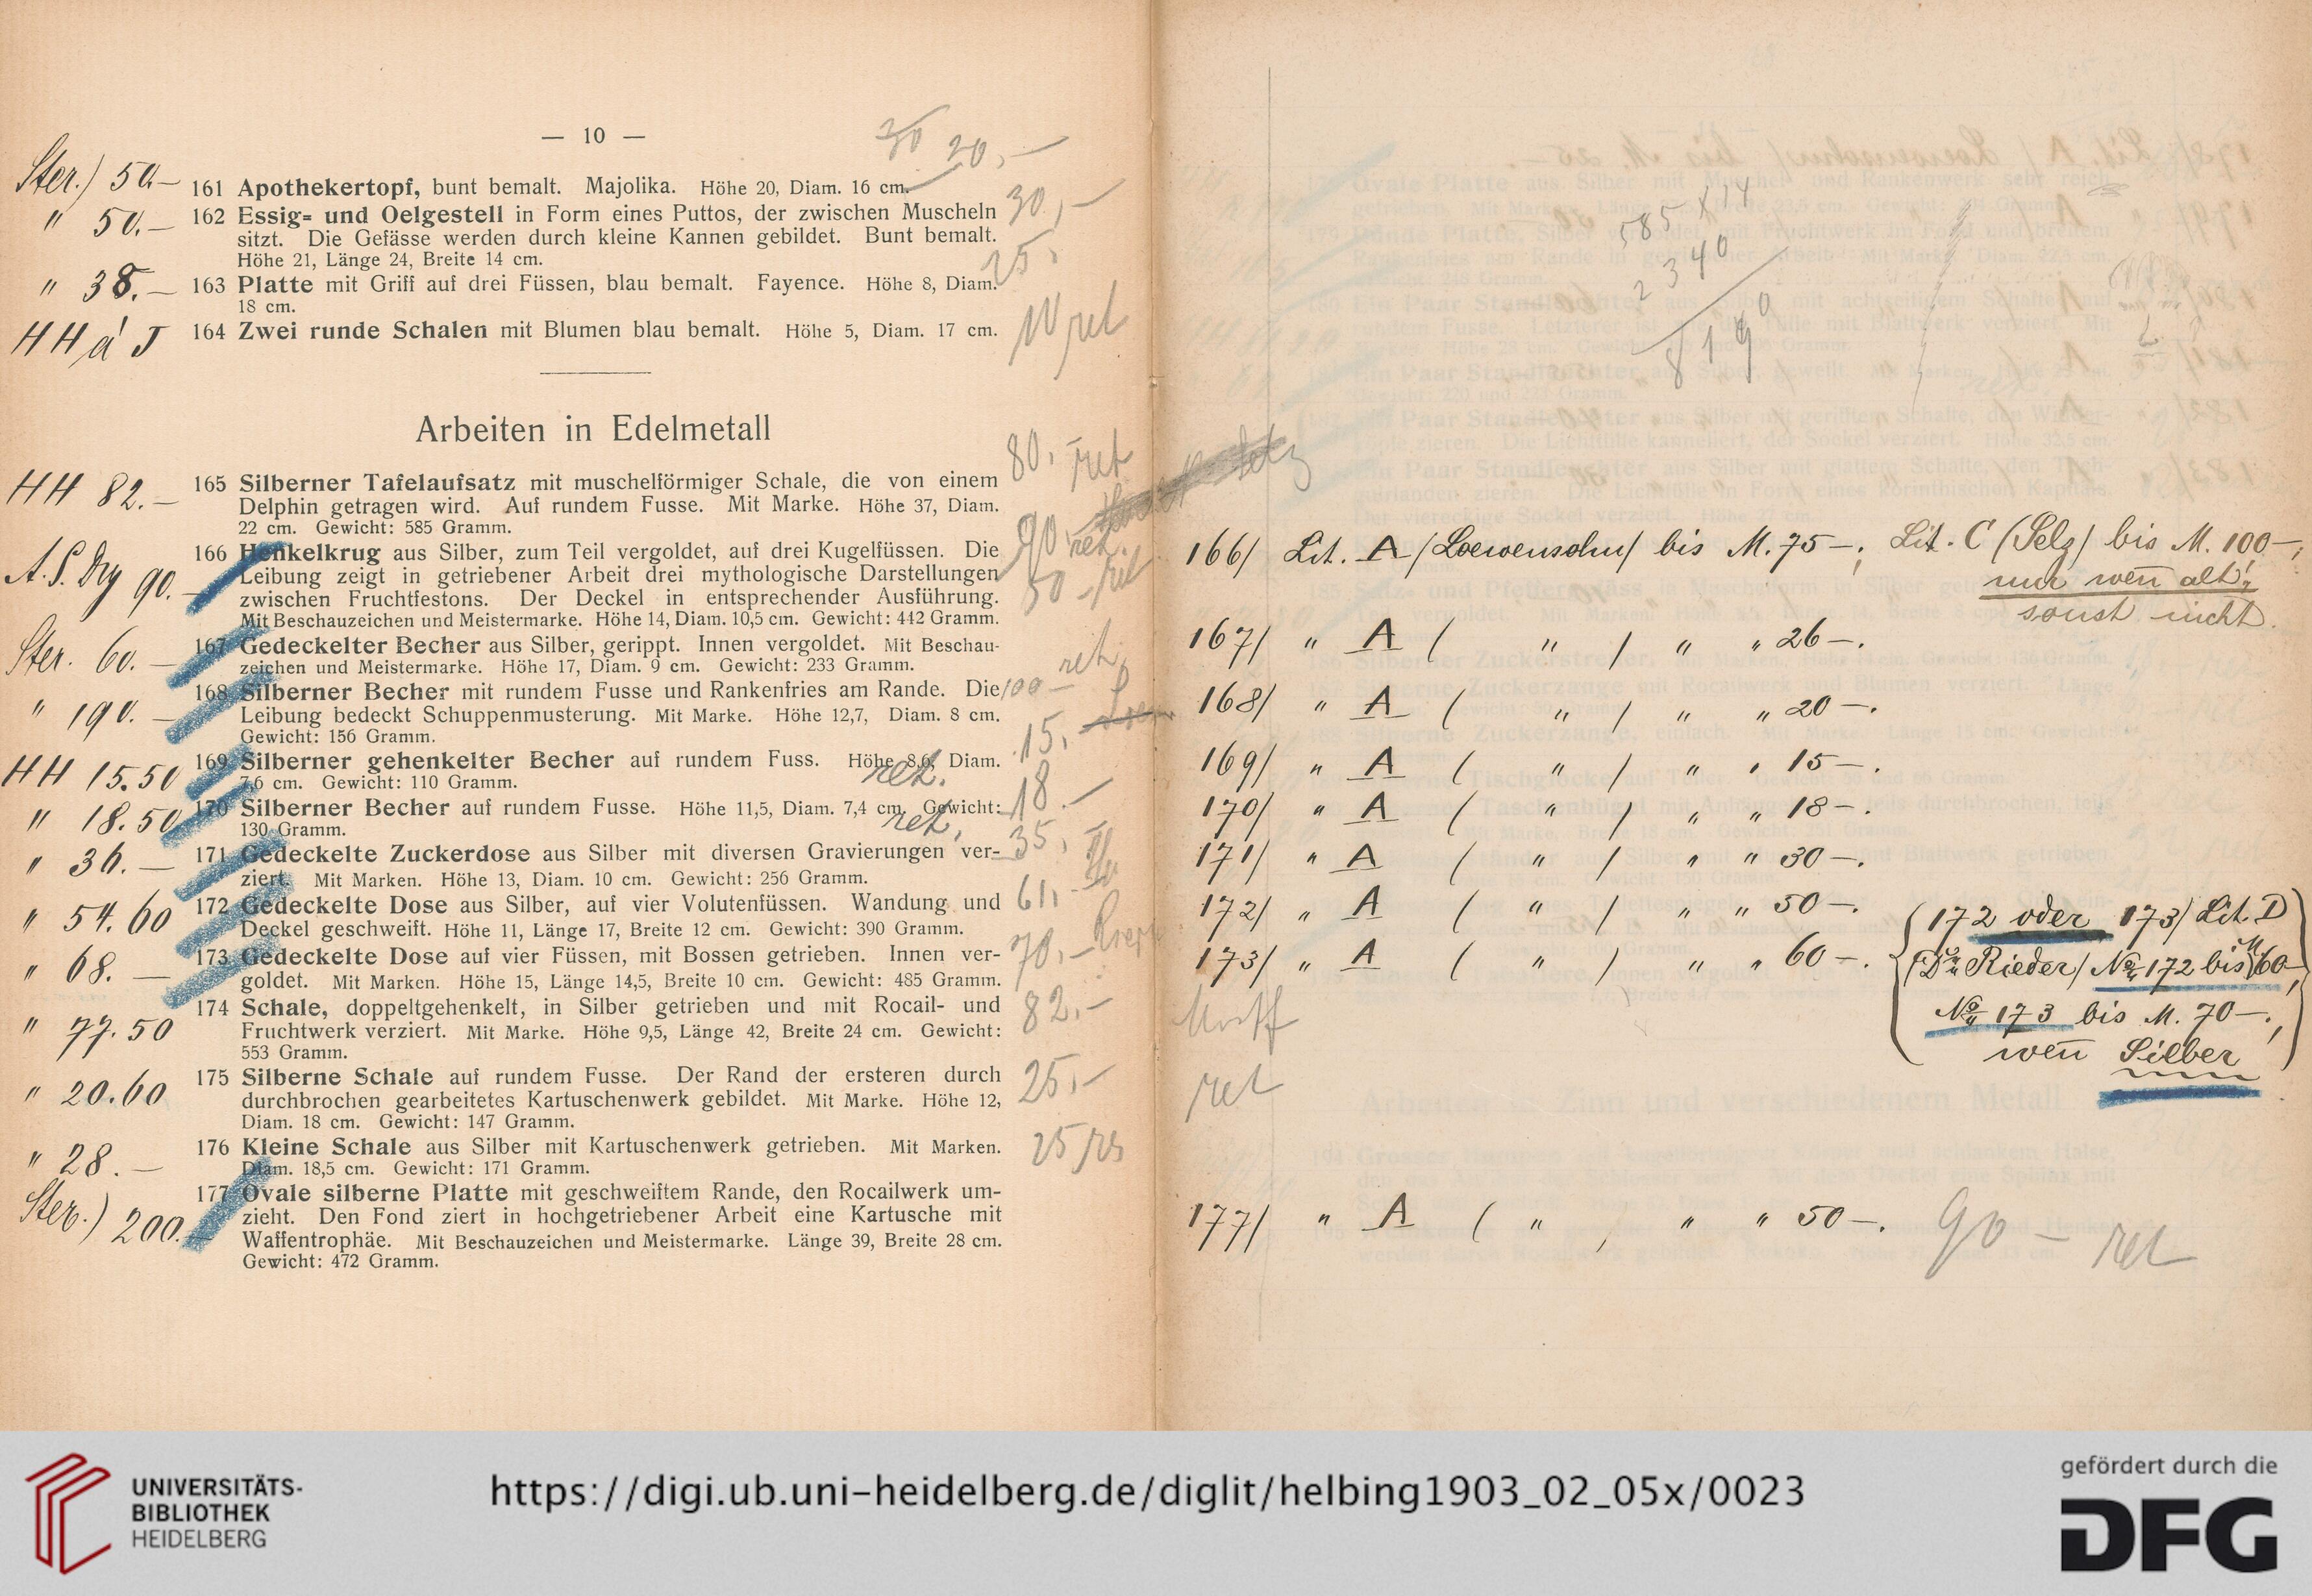 — 10 —
30 20,—
Ster.) 50.—
161 Apothekertopf, bunt bemalt. Majolika. Höhe 20, Diam. 16 cm.
" 50.—
162 Essig= und Oelgestell in Form eines Puttos, der zwischen Muscheln
30,—
sitzt. Die Gefässe werden durch kleine Kannen gebildet. Bunt bemalt.
Höhe 21, Länge 24, Breite 14 cm.
" 38.—
163 Platte mit Griff auf drei Füssen, blau bemalt. Fayence. Höhe 8, Diam.
25.
18 cm.
HH á J
164 Zwei runde Schalen mit Blumen blau bemalt. Höhe 5, Diam. 17 cm.
ret
Arbeiten in Edelmetall
HH 82.—
165 Silberner Tafelaufsatz mit muschelförmiger Schale, die von einem
80,- ret
Delphin getragen wird. Auf rundem Fusse. Mit Marke. Höhe 37, Diam.
22 cm. Gewicht: 585 Gramm.
90.—
166 Henkelkrug aus Silber, zum Teil vergoldet, auf drei Kugelfüssen. Die
90,- ret.
Leibung zeigt in getriebener Arbeit drei mythologische Darstellungen
50 - ret
zwischen Fruchtfestons. Der Deckel in entsprechender Ausführung.
Mit Beschauzeichen und Meistermarke. Höhe 14, Diam. 10,5 cm. Gewicht: 442 Gramm.
Ster. 60.—
167 Gedeckelter Becher aus Silber, gerippt. Innen vergoldet. Mit Beschau-
zeichen und Meistermarke. Höhe 17, Diam. 9 cm. Gewicht: 233 Gramm.
" 190.—
168 Silberner Becher mit rundem Fusse und Rankenfries am Rande. Die
100— ret
Leibung bedeckt Schuppenmusterung. Mit Marke. Höhe 12,7, Diam. 8 cm.
Gewicht: 156 Gramm.
HH 15.50
169 Silberner gehenkelter Becher auf rundem Fuss. Höhe 8,6, Diam.
15,-
7,6 cm. Gewicht: 110 Gramm.
ret.
" 18.50
170 Silberner Becher auf rundem Fusse. Höhe 11,5, Diam. 7,4 cm. Gewicht:
18.—
130 Gramm.
ret.
" 36.—
171 Gedeckelte Zuckerdose aus Silber mit diversen Gravierungen ver-
35,-
ziert. Mit Marken. Höhe 13, Diam. 10 cm. Gewicht: 256 Gramm.
" 54.60
172 Gedeckelte Dose aus Silber, auf vier Volutenfüssen. Wandung und
61,
Deckel geschweift. Höhe 11, Länge 17, Breite 12 cm. Gewicht: 390 Gramm.
" 68.—
173 Gedeckelte Dose auf vier Füssen, mit Bossen getrieben. Innen ver-
70,-
goldet. Mit Marken. Höhe 15, Länge 14,5, Breite 10 cm. Gewicht: 485 Gramm.
" 77.50
174 Schale, doppeltgehenkelt, in Silber getrieben und mit Rocail- und
82.-
Fruchtwerk verziert. Mit Marke. Höhe 9,5, Länge 42, Breite 24 cm. Gewicht:
553 Gramm.
" 20.60
175 Silberne Schale auf rundem Fusse. Der Rand der ersteren durch
25,-
durchbrochen gearbeitetes Kartuschenwerk gebildet. Mit Marke. Höhe 12,
Diam. 18 cm. Gewicht: 147 Gramm.
" 28.—
176 Kleine Schale aus Silber mit Kartuschenwerk getrieben. Mit Marken.
25
Diam. 18,5 cm. Gewicht: 171 Gramm.
Ster.) 200.—
177 Ovale silberne Platte mit geschweiftem Rande, den Rocailwerk um-
zieht. Den Fond ziert in hochgetriebener Arbeit eine Kartusche mit
Waffentrophäe. Mit Beschauzeichen und Meistermarke. Länge 39, Breite 28 cm.
Gewicht: 472 Gramm.
585 x 14
2340
8190
166/ Lit. A /Loewensohn/ bis M. 75—; Lit. C (Selz) bis M. 100.—;
nur wen̄ alt!,
sonst nicht.
167/ " A ( " / " " 26—.
168/ " A ( " / " " 20—.
169/ " A ( " / " " 15—.
170/ " A ( " / " " 18—.
171/ " A ( " / " " 30—.
172/ " A ( " / " " 50—.
173/ " A ( " / " " 60—.
172 oder 173/ Lit. D
(Dr. Rieder/ No. 172 bis M. 60—,
No. 173 bis M. 70—.,
wen̄ Silber
ret
177/ " A ( " / " " 50—.
90 — ret
UNIVERSITÄTS-
BIBLIOTHEK
HEIDELBERG
https://digi.ub.uni-heidelberg.de/diglit/helbing1903_02_05x/0023
gefördert durch die
DFG